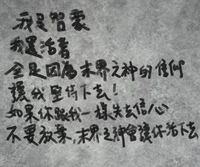 我是智豪
我還活著
全是因為末界之神的信仰
讓我堅信下去！
如果你跟我一樣失去信心
不要放棄，末界之神會讓你活下去